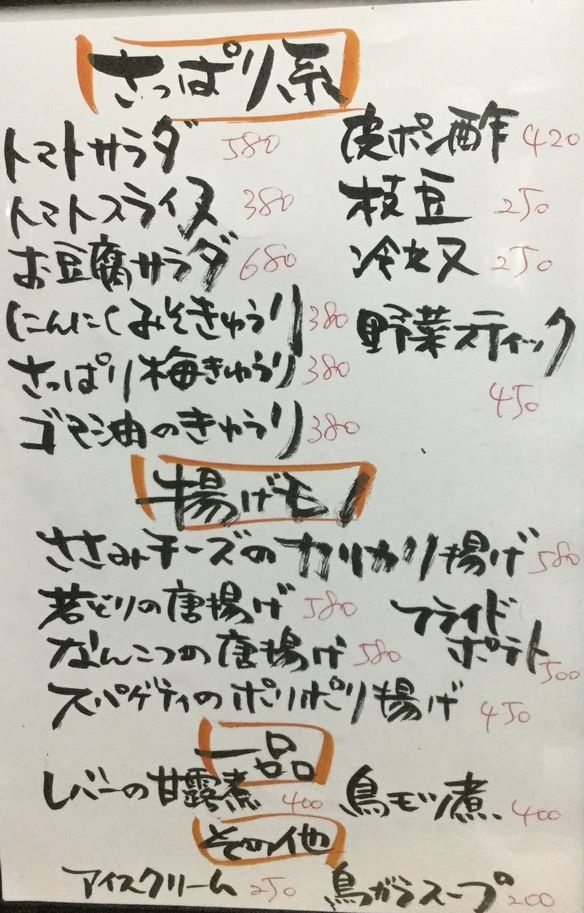 さっぱり系
トマトサラダ 580
トマトスライス 380
お豆腐サラダ 680
にんにくみそきゅうり 380
さっぱり梅きゅうり 380
ゴマ油のきゅうり 380
皮ポン酢 420
枝豆 250
冷奴 250
野菜スティック
450
揚げモノ
ささみチーズのカリカリ揚げ 580
若どりの唐揚げ 580
なんこつの唐揚げ 580
フライド
ポテト 500
スパゲティのポリポリ揚げ 450
一品
レバーの甘露煮 400
鳥モツ煮 400
その他
アイスクリーム 250
鳥ガラスープ 200